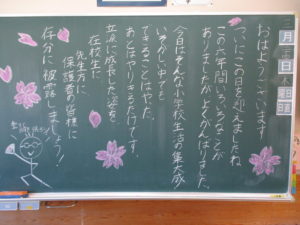 おはようございます
ついにこの日を迎えましたね。
この六年間いろいろなことが
ありましたがよくがんばりました。
今日はそんな小学校生活の集大成
いそがしい中でも
できることはやった。
あとはやりきるだけです。
立派に成長した姿を
在校生に
先生方に
保護者の皆様に
存分に披露しましょう！
月
日
日直